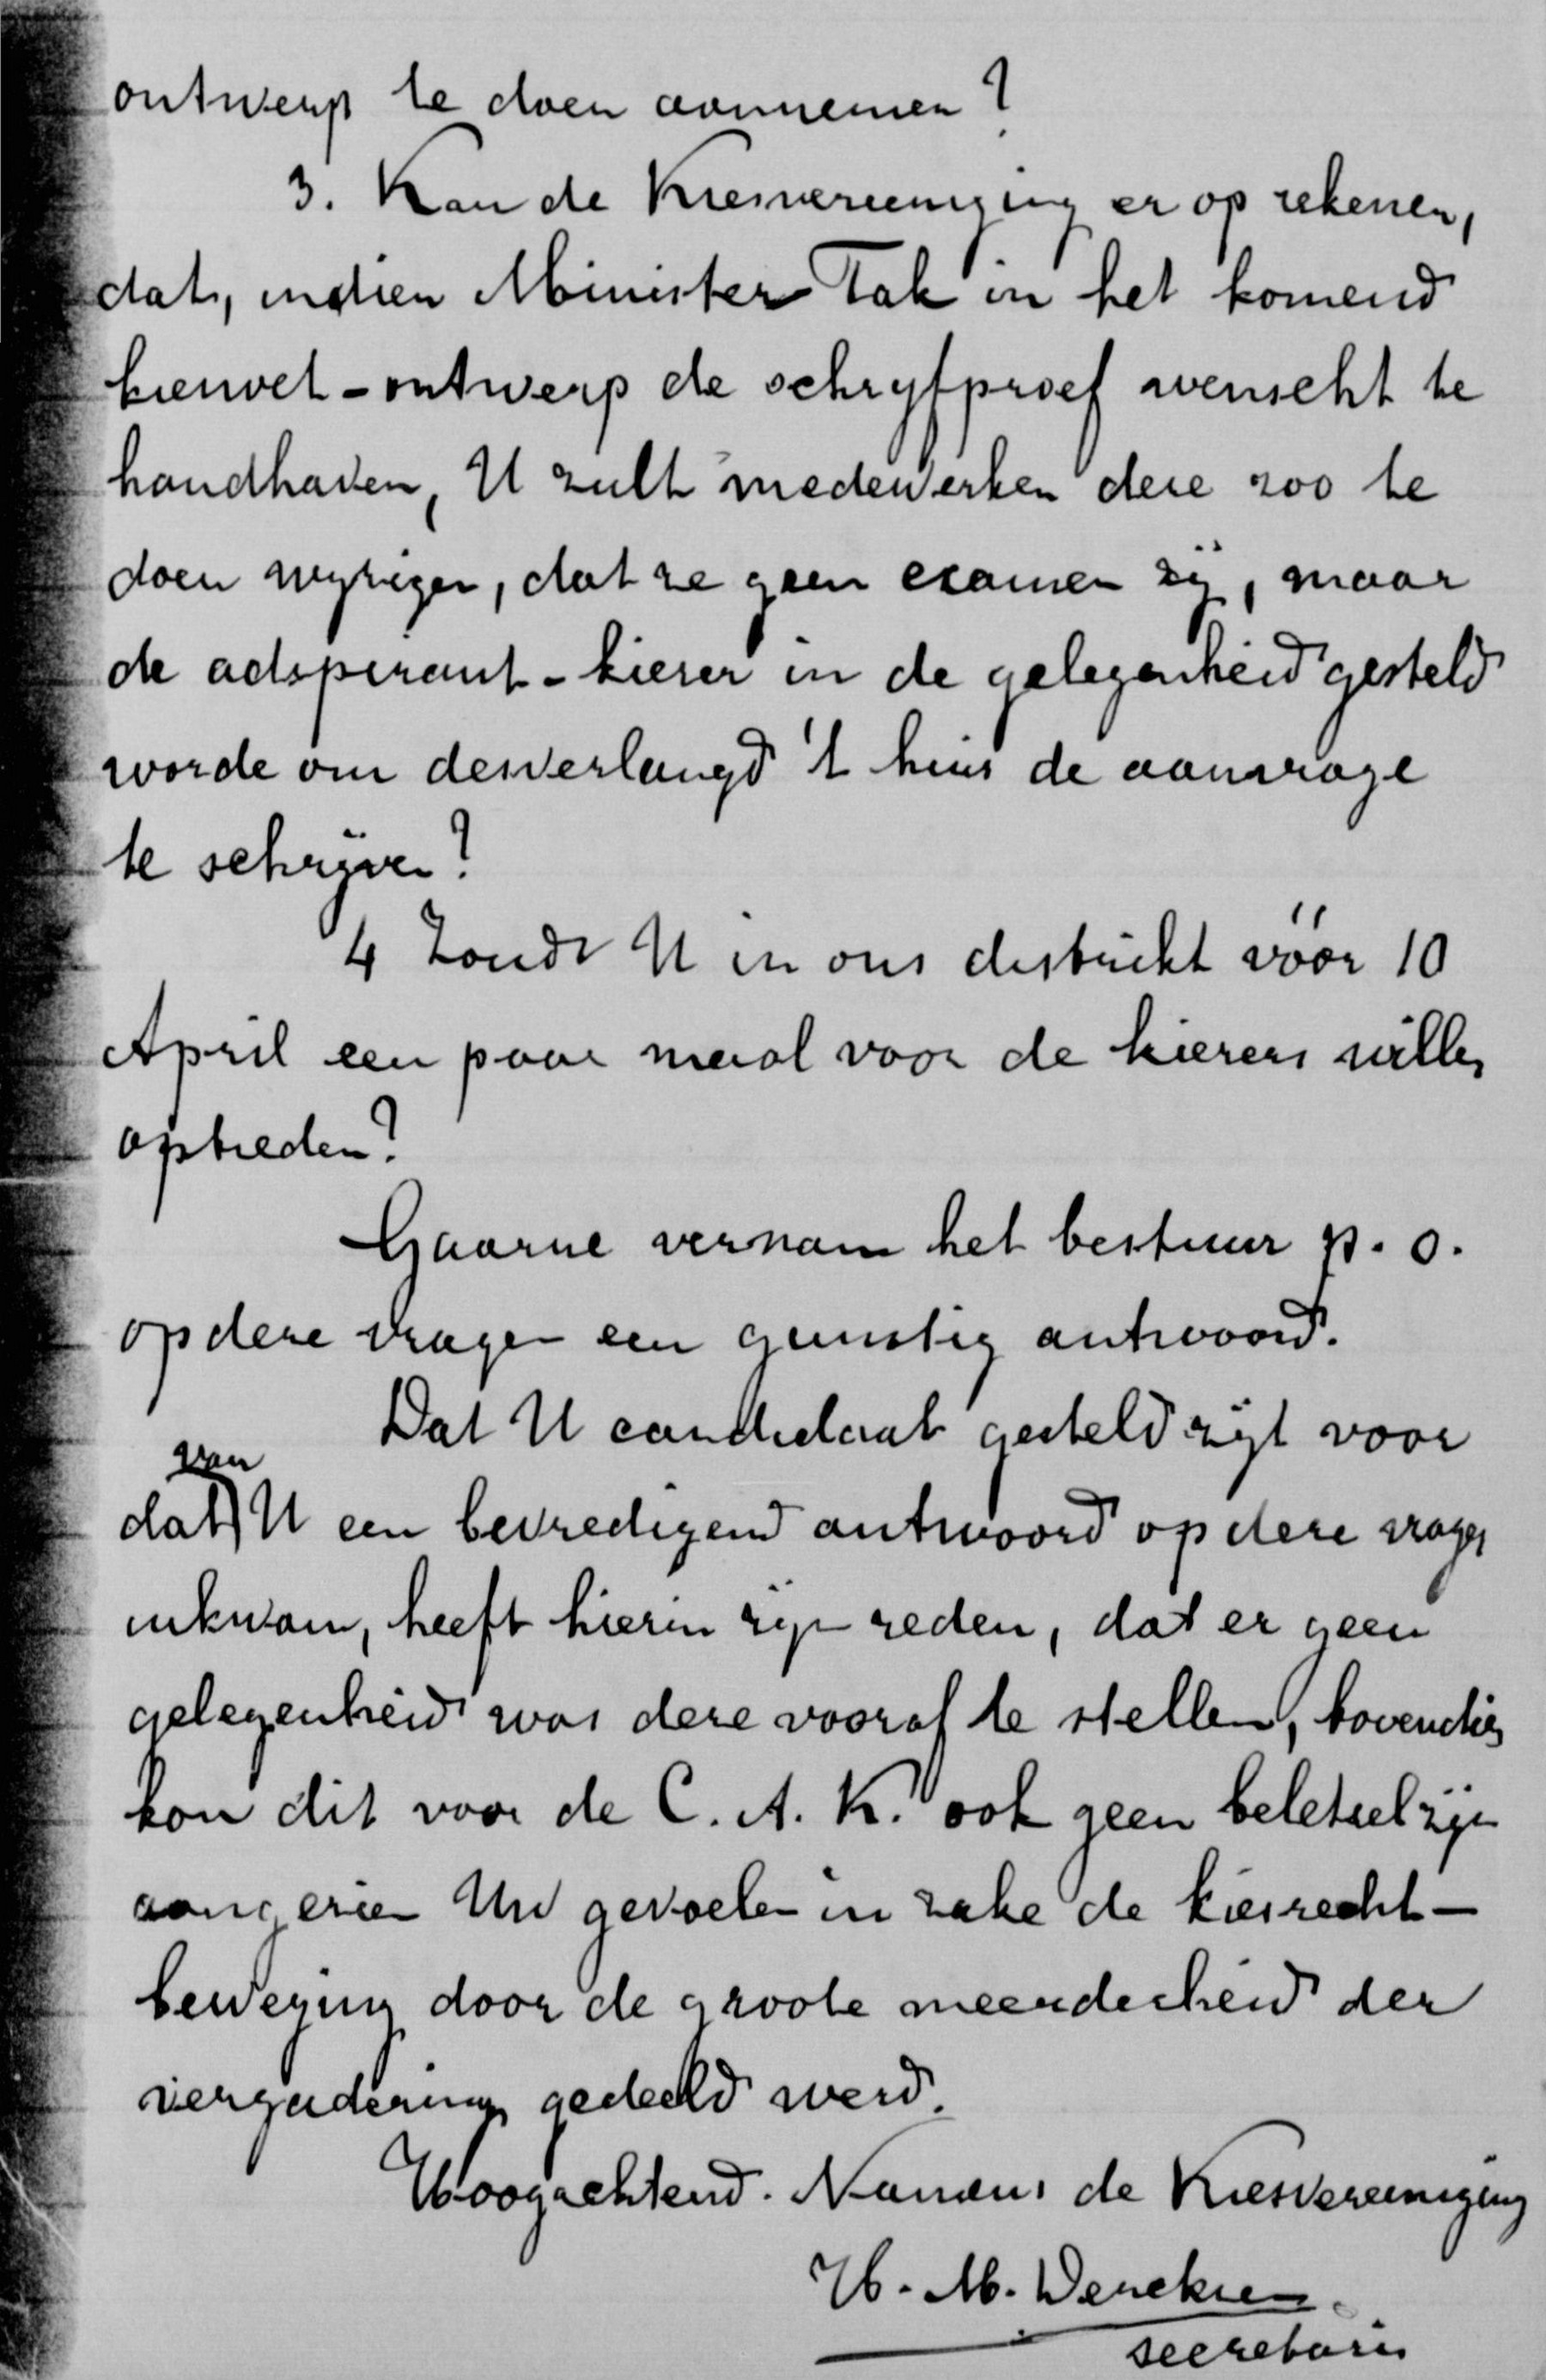 ontwerp te doen aannemen?
3. Kan de Kiesvereeniging er op rekenen,
dat, indien Minister Tak in het komend
kieswet-ontwerp de schryfproef wenscht te
handhaven, U zult medewerken deze zoo te
doen wyzigen, dat ze geen examen zij, maar
de adspirant-kiezer in de gelegenheid gesteld
worde om desverlangd 't huis de aanvrage
te schrijven?
4 Zoudt U in ons distrikt vóór 10
April een paar maal voor de kiezers willen
optreden?
Gaarne vernam het bestuur p. o.
op deze vragen een gunstig antwoord.
Dat U candidaat gesteld zijt voor
van
dat U een bevredigend antwoord op deze vragen
inkwam, heeft hierin zijn reden, dat er geen
gelegenheid was deze vooraf te stellen, bovendien
kon dit voor de C. A. K. ook geen beletsel zijn
aangezien Uw gevoelen in zake de kiesrecht-
beweging door de groote meerderheid der
vergadering gedeeld werd.
Hoogachtend. Namens de Kiesvereeniging
H. M. Dercksen
secretaris